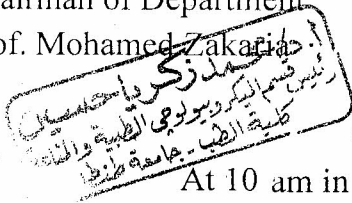 airman of Department
of. Mohamed Zakaria
أ.د/ محمد زكريا حسين
رئيس قسم الميكروبيولوجى الطبية والمناعة
كلية الطب - جامعة طنطا
At 10 am in